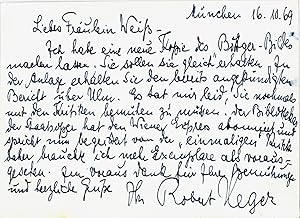 München 16.10.69
Liebes Fräulein Weiß-
Ich habe eine neue Kopie des Bildes
machen lassen. Sie sollen sie gleich erhalten. In
der Anlage erhalten Sie den bereits angekündigten
Bericht über Ulm. Es tut mir leid, Sie nochmals
mit den bemühen zu müssen. der Bibliothekar
der Staatsoper hat den Wiener Express abonniert und
spricht nun begeistert von der "einmaligen" Kritik
daher brauche ich mehr Exemplare als voraus-
gesehen. Im voraus Dank für Ihre Bemühungen
und herzliche Grüße Ihr Robert Heger